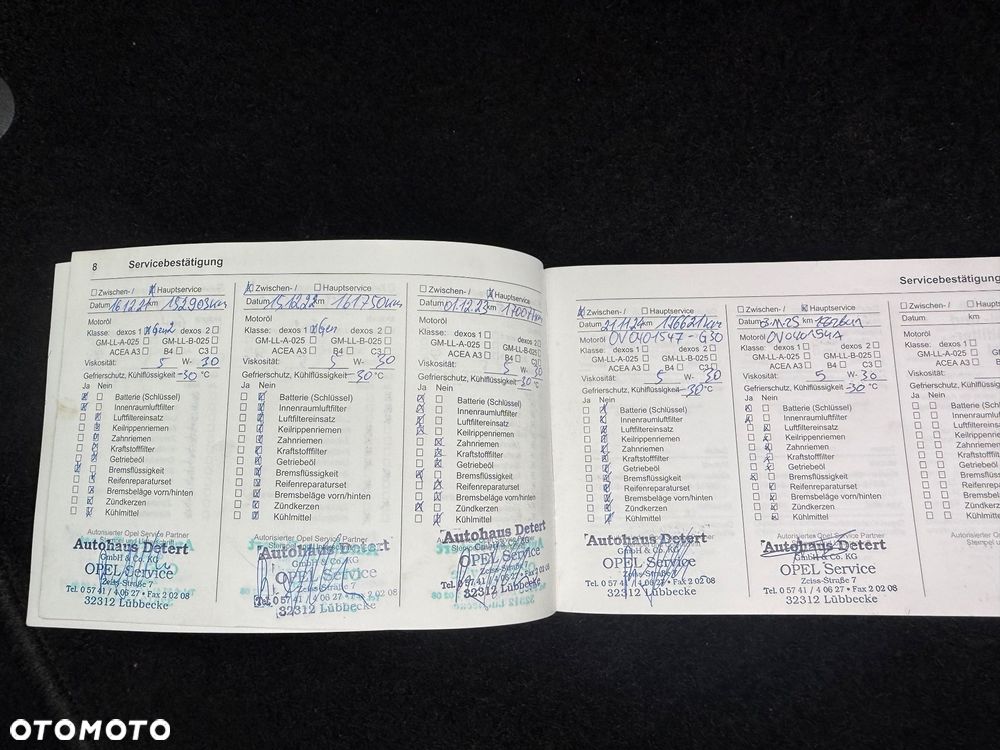 8 Servicebestätigung
☐ Zwischen-/ ☒ Hauptservice
Datum 16.12.21 km 152903km
Motoröl
Klasse: dexos 1 ☒ Gen2 dexos 2 ☐
GM-LL-A-025 ☐ GM-LL-B-025 ☐
ACEA A3 ☐ B4 ☐ C3 ☐
Viskosität: 5 W- 30
Gefrierschutz, Kühlflüssigkeit -30 °C
Ja Nein
Batterie (Schlüssel)
Innenraumluftfilter
Luftfiltereinsatz
Keilrippenriemen
Zahnriemen
Kraftstofffilter
Getriebeöl
Bremsflüssigkeit
Reifenreparaturset
Bremsbeläge vorn/hinten
Zündkerzen
Kühlmittel
Autorisierter Opel Service Partner
Autohaus Detert
GmbH & Co. KG
OPEL Service
Zeiss-Straße 7
Tel. 0 57 41 / 4 06 27 • Fax 2 02 08
32312 Lübbecke
☒ Zwischen-/ ☐ Hauptservice
Datum 15.12.22 km 161750km
Motoröl
Klasse: dexos 1 ☒ Gen dexos 2 ☐
GM-LL-A-025 ☐ GM-LL-B-025 ☐
ACEA A3 ☐ B4 ☐ C3 ☐
Viskosität: 5 W- 30
Gefrierschutz, Kühlflüssigkeit -30 °C
Ja Nein
Batterie (Schlüssel)
Innenraumluftfilter
Luftfiltereinsatz
Keilrippenriemen
Zahnriemen
Kraftstofffilter
Getriebeöl
Bremsflüssigkeit
Reifenreparaturset
Bremsbeläge vorn/hinten
Zündkerzen
Kühlmittel
Autorisierter Opel Service Partner
Autohaus Detert
GmbH & Co. KG
OPEL Service
Zeiss-Straße 7
Tel. 0 57 41 / 4 06 27 • Fax 2 02 08
32312 Lübbecke
☐ Zwischen-/ ☒ Hauptservice
Datum 01.12.23 km
Motoröl
Klasse: dexos 1 ☐ dexos 2 ☐
GM-LL-A-025 ☐ GM-LL-B-025 ☐
ACEA A3 ☐ B4 ☐ C3 ☐
Viskosität: 5 W- 30
Gefrierschutz, Kühlflüssigkeit -30 °C
Ja Nein
Batterie (Schlüssel)
Innenraumluftfilter
Luftfiltereinsatz
Keilrippenriemen
Zahnriemen
Kraftstofffilter
Getriebeöl
Bremsflüssigkeit
Reifenreparaturset
Bremsbeläge vorn/hinten
Zündkerzen
Kühlmittel
Autohaus Detert
GmbH & Co. KG
OPEL Service
Zeiss-Straße 7
Tel. 0 57 41 / 4 06 27 • Fax 2 02 08
32312 Lübbecke
Servicebestätigung
☒ Zwischen-/ ☐ Hauptservice
Datum 21.11.24 km 176621km
Motoröl OV0401547-G30
Klasse: dexos 1 ☐ dexos 2 ☐
GM-LL-A-025 ☐ GM-LL-B-025 ☐
ACEA A3 ☐ B4 ☐ C3 ☐
Viskosität: 5 W- 30
Gefrierschutz, Kühlflüssigkeit -30 °C
Ja Nein
Batterie (Schlüssel)
Innenraumluftfilter
Luftfiltereinsatz
Keilrippenriemen
Zahnriemen
Kraftstofffilter
Getriebeöl
Bremsflüssigkeit
Reifenreparaturset
Bremsbeläge vorn/hinten
Zündkerzen
Kühlmittel
Autorisierter Opel Service Partner
Autohaus Detert
GmbH & Co. KG
OPEL Service
Zeiss-Straße 7
Tel. 0 57 41 / 4 06 27 • Fax 2 02 08
32312 Lübbecke
☐ Zwischen-/ ☒ Hauptservice
Datum km
Motoröl
Klasse: dexos 1 ☐ dexos 2 ☐
GM-LL-A-025 ☐ GM-LL-B-025 ☐
ACEA A3 ☐ B4 ☐ C3 ☐
Viskosität: 5 W- 30
Gefrierschutz, Kühlflüssigkeit -30 °C
Ja Nein
Batterie (Schlüssel)
Innenraumluftfilter
Luftfiltereinsatz
Keilrippenriemen
Zahnriemen
Kraftstofffilter
Getriebeöl
Bremsflüssigkeit
Reifenreparaturset
Bremsbeläge vorn/hinten
Zündkerzen
Kühlmittel
Autorisierter Opel Service Partner
Autohaus Detert
GmbH & Co. KG
OPEL Service
Zeiss-Straße 7
Tel. 0 57 41 / 4 06 27 • Fax 2 02 08
32312 Lübbecke
☐ Zwischen-/ ☐ Hauptser
Datum km
Motoröl
Klasse: dexos 1 ☐
GM-LL-A-025 ☐ GM-LL
ACEA A3 ☐ B4
Viskosität:
Gefrierschutz, Kühlflüssigkei
Ja Nein
Batterie (Schlüs
Innenraumluftfil
Luftfiltereinsatz
Keilrippenrieme
Zahnriemen
Kraftstofffilter
Getriebeöl
Bremsflüssigk
Reifenreparatu
Bremsbeläge
Zündkerzen
Kühlmittel
Autorisierter Opel S
Stempel u
OTOMOTO